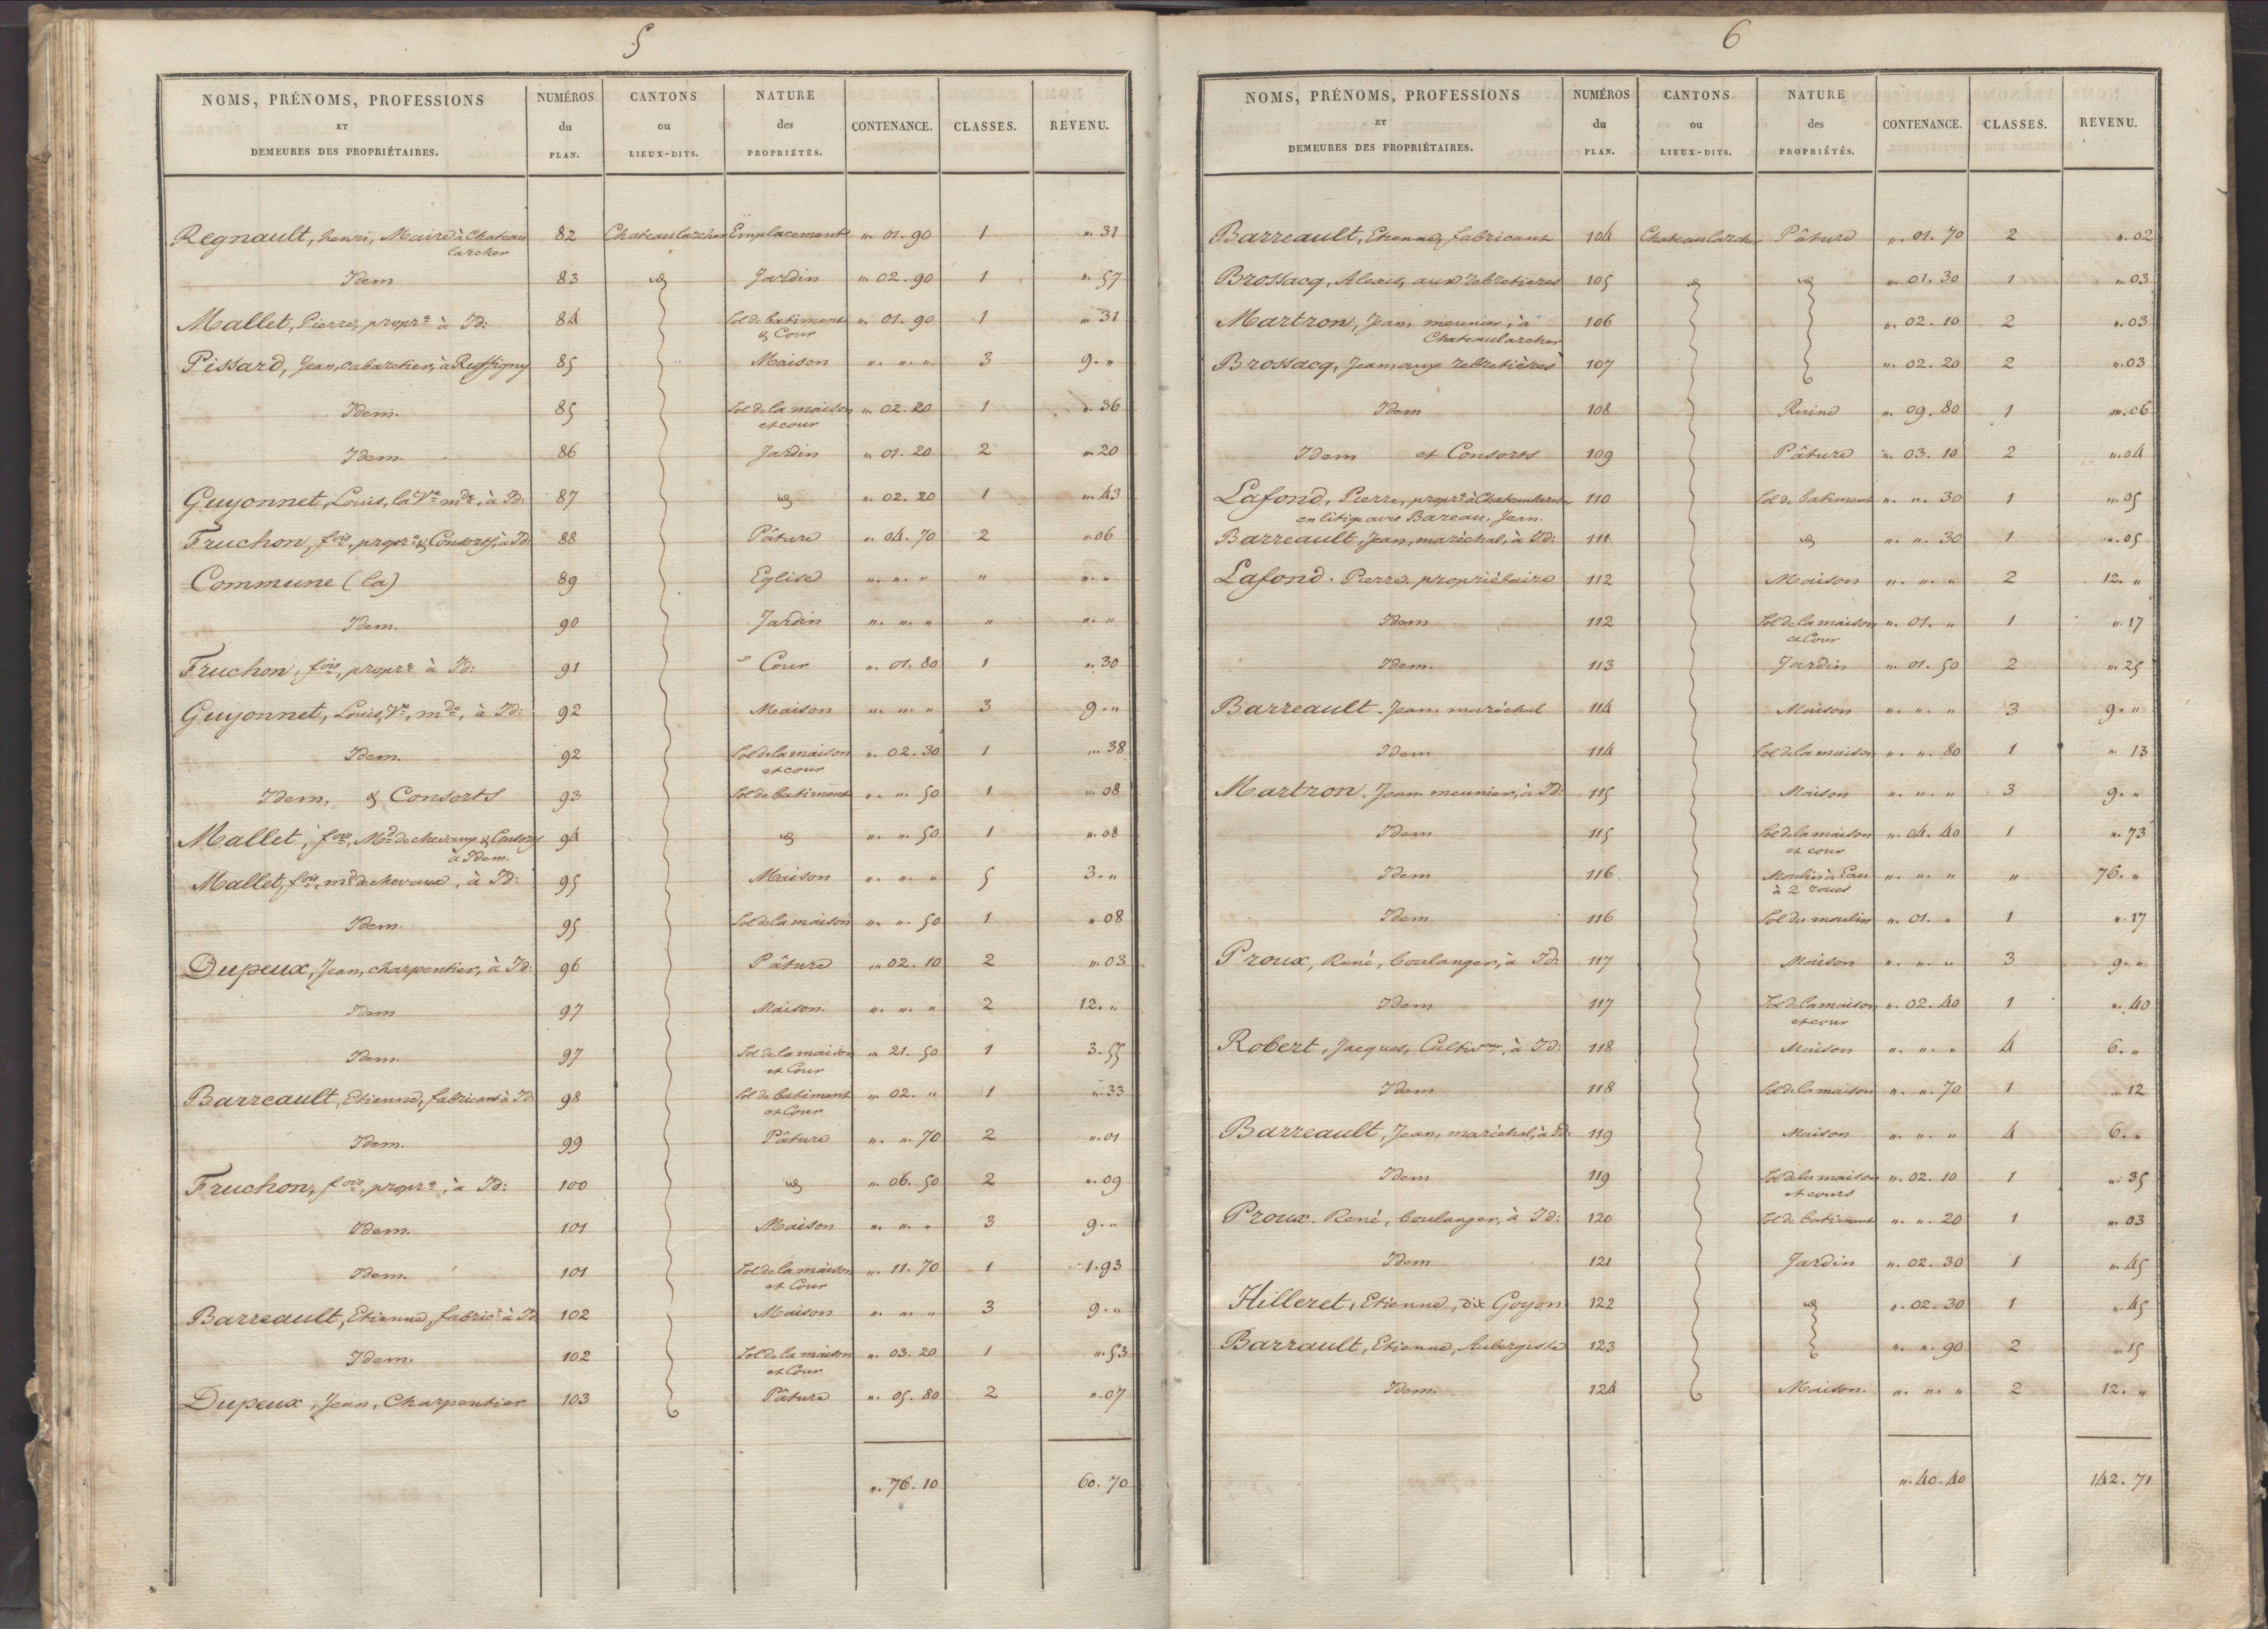 5
NOMS, PRÉNOMS, PROFESSIONS ET DEMEURES DES PROPRIÉTAIRES. NUMÉROS du PLAN. CANTONS ou LIEUX-DITS. NATURE des PROPRIÉTÉS. CONTENANCE. CLASSES. REVENU.
Regnault, henri, Maire à Chateau larcher 82 Chateaularcher Emplacement „. 01. 90 1 „. 31
Idem 83 id Jardin „. 02. 90 1 „. 57
Mallet, Pierre, propre à Id: 84 Sol de batiment & Cour „. 01. 90 1 „. 31
Pissard, Jean, cabaretier, à Ruffigny 85 Maison „. „. „ 3 9. „
Idem. 85 Sol de la maison et cour „. 02. 20 1 „. 36
Idem. 86 Jardin „. 01. 20 2 „. 20
Guyonnet, Louis, la Ve mde, à Id: 87 id „. 02. 20 1 „. 43
Fruchon, fois, propre & Consorts, à Id: 88 Pâture „. 04. 70 2 „. 06
Commune (la) 89 Eglise „. „. „ „ „. „
Idem. 90 Jardin „. „. „ „ „. „
Fruchon, fois, propre à Id: 91 Cour „. 01. 80 1 „. 30
Guyonnet, Louis, Ve, mde, à Id: 92 Maison „. „. „ 3 9. „
Idem. 92 Sol de la maison et cour „. 02. 30 1 „. 38
Idem, & Consorts 93 Sol de batiment „. „. 50 1 „. 08
Mallet, fois, Md de chevaux & Consorts à Idem. 94 id „. „. 50 1 „. 08
Mallet, fois, md de chevaux, à Id: 95 Maison „. „. „ 5 3. „
Idem. 95 Sol de la maison „. „. 50 1 „. 08
Dupeux, Jean, charpentier, à Id: 96 Pâture „. 02. 10 2 „. 03
Idem 97 Maison. „. „. „ 2 12. „
Idem. 97 Sol de la maison et Cour „. 21. 50 1 3. 55
Barreault, Etienne, fabricant à Id: 98 Sol de batiment et Cour „. 02. „ 1 „. 33
Idem. 99 Pâture „. „. 70 2 „. 01
Fruchon, fois, propre, à Id: 100 id „. 06. 50 2 „. 09
Idem. 101 Maison „. „. „ 3 9. „
Idem. 101 Sol de la maison et Cour „. 11. 70 1 1. 93
Barreault, Etienne, fabrict à Id 102 Maison „. „. „ 3 9. „
Idem. 102 Sol de la maison et Cour „. 03. 20 1 „. 53
Dupeux, Jean, Charpentier 103 Pâture „. 05. 80 2 „. 07
„. 76. 10 60. 70
6
NOMS, PRÉNOMS, PROFESSIONS ET DEMEURES DES PROPRIÉTAIRES. NUMÉROS du PLAN. CANTONS ou LIEUX-DITS. NATURE des PROPRIÉTÉS. CONTENANCE. CLASSES. REVENU.
Barreault, Etienne, fabricant 104 Chateaularcher Pâture „. 01. 70 2 „. 02
Brossacq, Alexis, aux rebretieres 105 id id „. 01. 30 1 „. 03
Martron, Jean, meunier, à Chateaularcher 106 „. 02. 10 2 „. 03
Brossacq, Jean, aux rebretières 107 „. 02. 20 2 „. 03
Idem 108 Ruine „. 09. 80 1 „. 06
Idem et Consorts 109 Pâture „. 03. 10 2 „. 04
Lafond, Pierre, propre à Chateaularcher en litige avec Bareau, Jean. 110 Sol de batiment „. „. 30 1 „. 05
Barreault, Jean, maréchal, à Id: 111 id „. „. 30 1 „. 05
Lafond. Pierre. propriétaire 112 Maison „. „. „ 2 12. „
Idem 112 Sol de la maison et Cour „. 01. „ 1 „. 17
Idem. 113 Jardin „. 01. 50 2 „. 25
Barreault. Jean. maréchal 114 Maison „. „. „ 3 9. „
Idem 114 Sol de la maison „. „. 80 1 „. 13
Martron. Jean. meunier, à Id: 115 Maison „. „. „ 3 9. „
Idem 115 Sol de la maison et cour „. 04. 40 1 „. 73
Idem 116. Moulin à Eau à 2 roues „. „. „ „ 76. „
Idem 116 Sol du moulin „. 01. „ 1 „. 17
Proux, René, boulanger, à Id: 117 Maison „. „. „ 3 9. „
Idem 117 Sol de la maison et cour „. 02. 40 1 „. 40
Robert, Jacques, Cultiveur, à Id: 118 Maison „. „. „ 4 6. „
Idem 118 Sol de la maison „. „. 70 1 „. 12
Barreault, Jean, maréchal, à Id: 119 Maison „. „. „ 4 6. „
Idem 119 Sol de la maison et cours „. 02. 10 1 „. 35
Proux. René, boulanger, à Id: 120 Sol de batiment „. „. 20 1 „. 03
Idem 121 Jardin „. 02. 30 1 „. 45
Hilleret, Etienne, dit Goyon 122 id „. 02. 30 1 „. 45
Barrault, Etienne, Aubergiste 123 „. „. 90 2 „. 15
Idem. 124 Maison. „. „. „ 2 12. „
„. 40. 40 142. 71